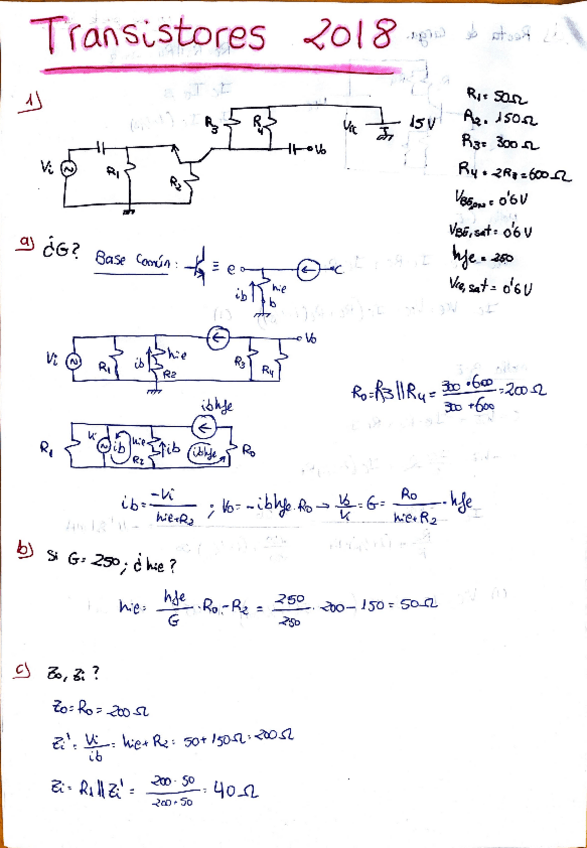 Transistores 2018
1)
R3
R4
Vcc
15V
Vi
R1
R2
Vo
R1 = 50Ω
R2 = 150Ω
R3 = 300Ω
R4 = 2R3 = 600Ω
VBE,on = 0'6V
VBE,sat = 0'6V
hfe = 250
Vce,sat = 0'6V
a) ¿G?
Base Común:
≡ e
c
ib
hie
b
Vi
R1
ib
hie
R2
R3
R4
Vo
Ro = R3 || R4 = 300·600 / 300+600 = 200Ω
ibhfe
R1
Vi
ib
hie
R2
ib
ibhfe
Ro
ib = -Vi / hie+R2 ; Vo = -ibhfe·Ro → Vo/Vi = G = Ro / hie+R2 · hfe
b) Si G = 250; ¿hie?
hie = hfe/G · Ro - R2 = 250/250 · 200 - 150 = 50Ω
c) Zo, Zi?
Zo = Ro = 200Ω
Zi' = Vi/ib = hie + R2 = 50 + 150Ω = 200Ω
Zi = R1 || Zi' = 200·50 / 200+50 = 40Ω